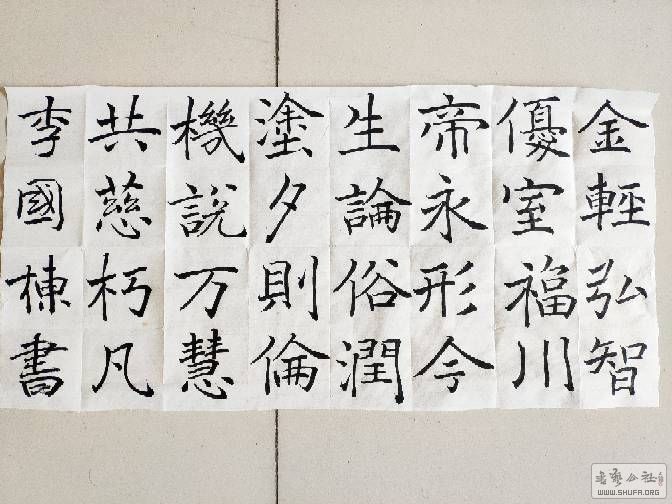 金輕弘智
優室福川
帝永形今
生論俗潤
塗夕則倫
機說万慧
共慈朽凡
李國棟書
书艺公社
WWW.SHUFA.ORG